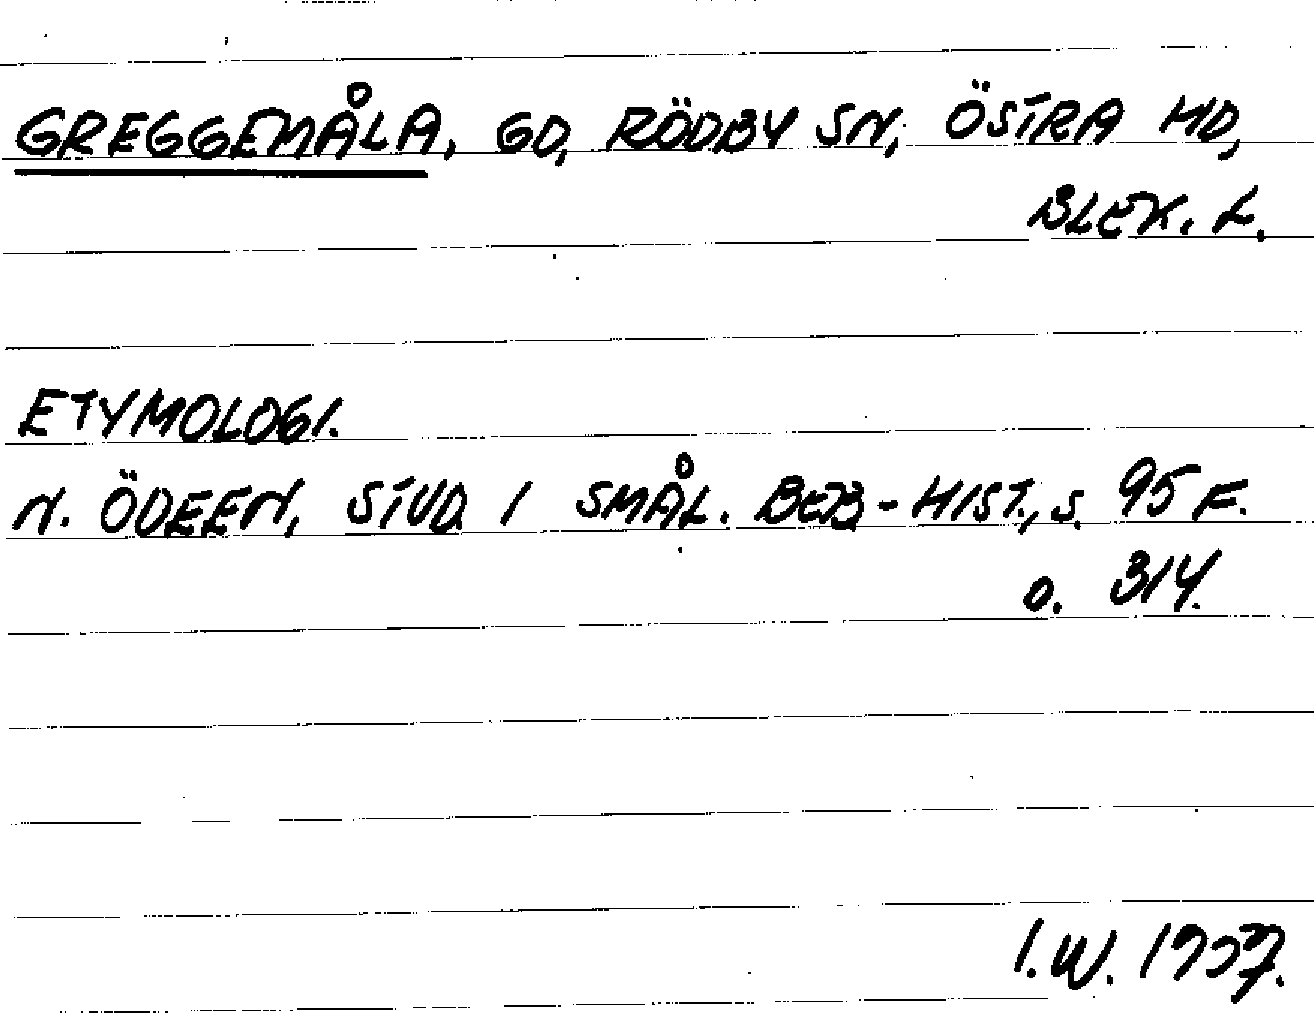 GREGGEMÅLA, GD, RÖDBY SN, ÖSTRA HD,
BLEK. L.
ETYMOLOGI.
N. ÖDEEN, STUD. I SMÅL. BEB-HIST., S. 95 F.
O. 314.
I.W. 1937.